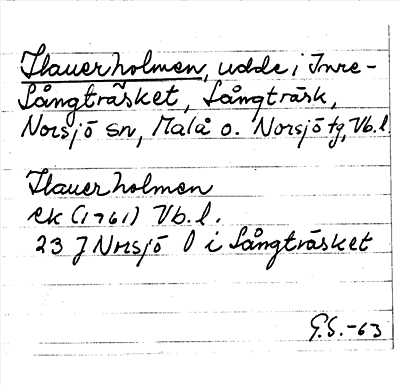 Ilauerholmen, udde i Inre-
Långträsket, Långträsk,
Norsjö sn, Malå o. Norsjö tg, Vb. l.
Ilauerholmen
ek (1961) Vb. l.
23 J Norsjö l i Långträsket
G.S.-63